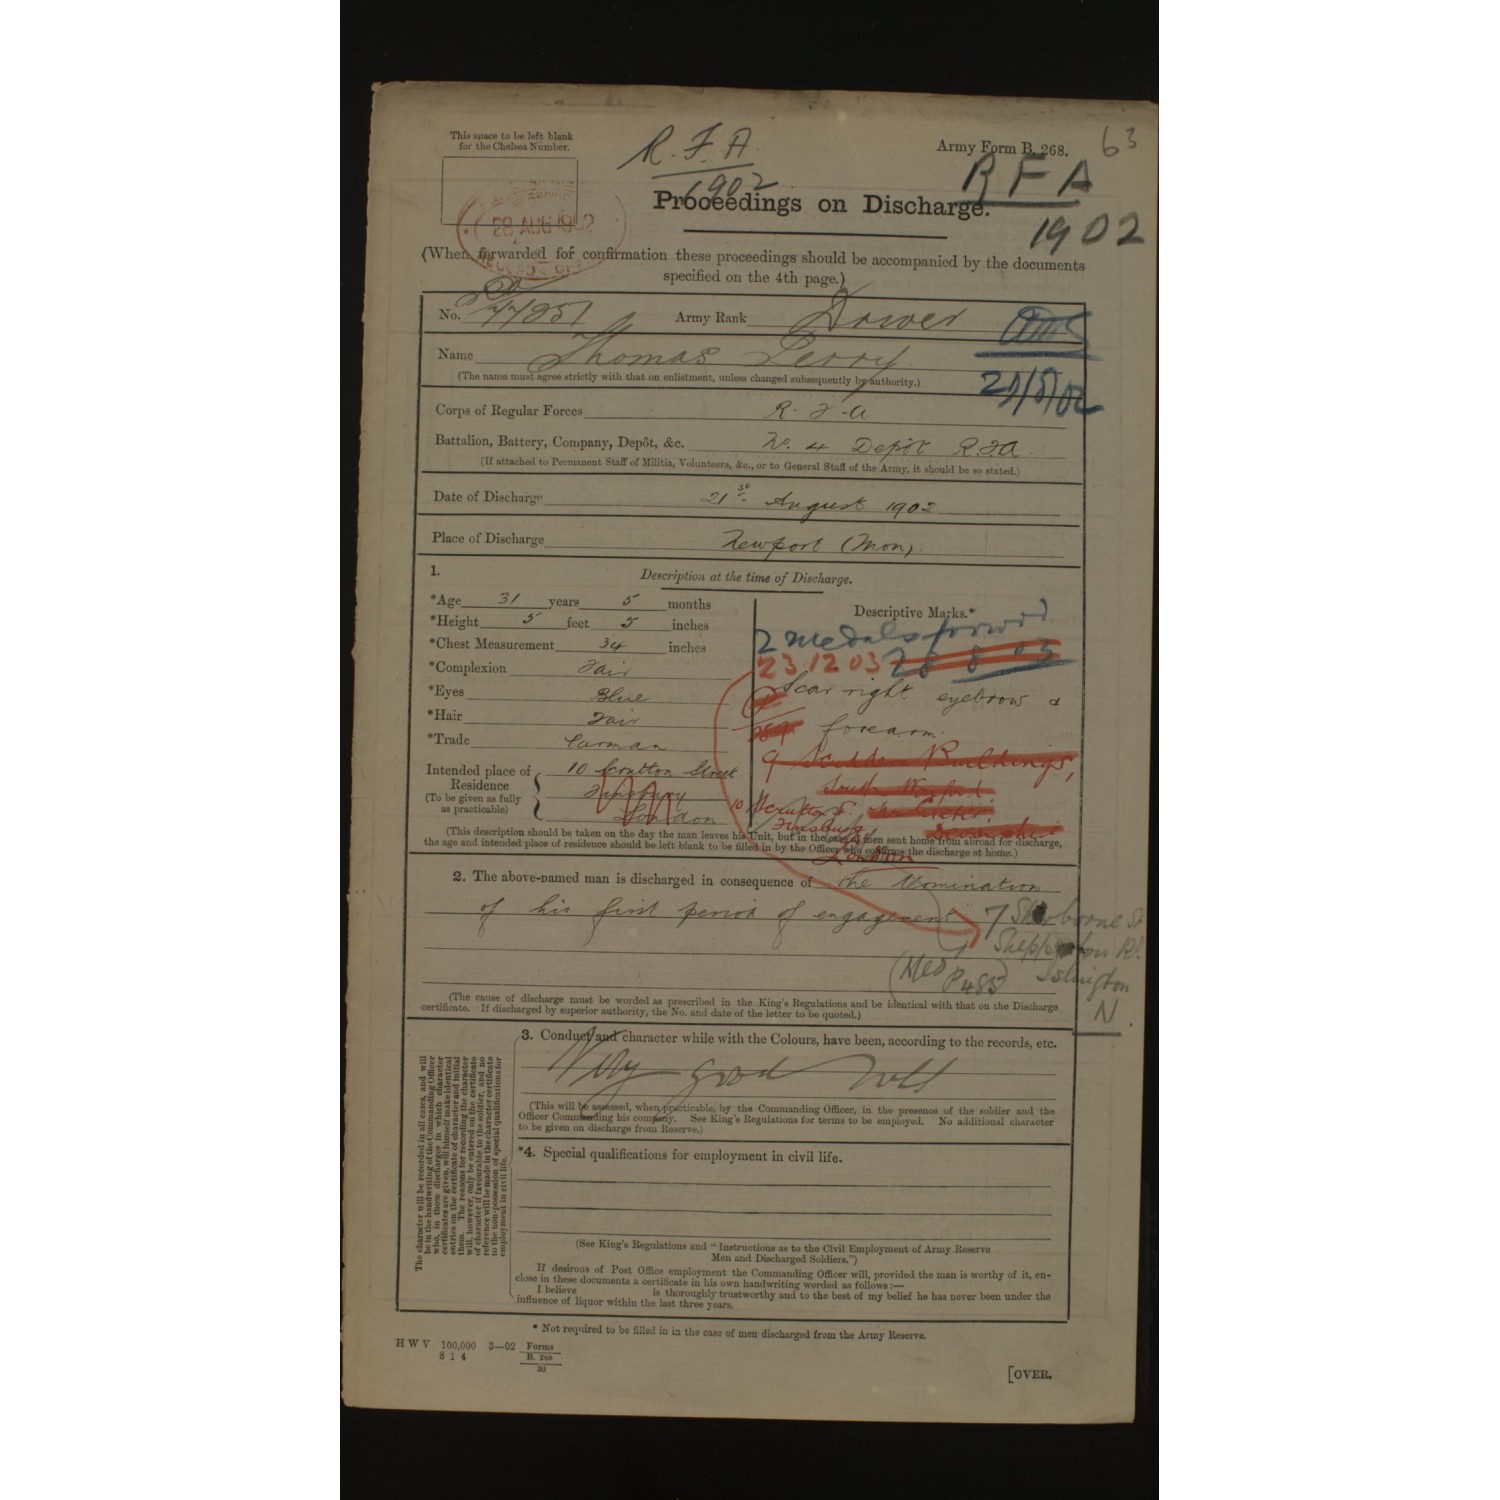 This space to be left blank
for the Chelsea Number.
R.F.A.
1902
Army Form B. 268.
63
RFA
1902
Proceedings on Discharge.
28 AUG 1902
(When forwarded for confirmation these proceedings should be accompanied by the documents
specified on the 4th page.)
No. 77951 Army Rank Driver
Name Thomas Perry
(The name must agree strictly with that on enlistment, unless changed subsequently by authority.)
Corps of Regular Forces R.F.A
Battalion, Battery, Company, Depôt, &c. No. 4 Depôt R.F.A.
(If attached to Permanent Staff of Militia, Volunteers, &c., or to General Staff of the Army, it should be so stated.)
Date of Discharge 21st August 1902
Place of Discharge Newport (Mon)
1. Description at the time of Discharge.
*Age 31 years 5 months
*Height 5 feet 5 inches
*Chest Measurement 34 inches
*Complexion Fair
*Eyes Blue
*Hair Fair
*Trade Carman
Intended place of
Residence
(To be given as fully
as practicable)
10 Scrutton Street
Finsbury
London
Descriptive Marks.*
2 medals forwd
23.12 03 28 8 03
Scar right eyebrow &
forearm.
9 Buildings,
South
10 Scrutton St.
Finsbury
London
(This description should be taken on the day the man leaves his Unit, but in the case of men sent home from abroad for discharge,
the age and intended place of residence should be left blank to be filled in by the Officer who confirms the discharge at home.)
2. The above-named man is discharged in consequence of the termination
of his first period of engagement
7 Sherborne St
Shepperton Rd.
Islington
N.
(Med
P485)
(The cause of discharge must be worded as prescribed in the King's Regulations and be identical with that on the Discharge
certificate. If discharged by superior authority, the No. and date of the letter to be quoted.)
The character will be recorded in all cases, and will
be in the handwriting of the Commanding Officer
who, in those discharges in which character
certificates are given, will himself make identical
entries on the certificate of character and initial
them. The reasons for recording the character
will, however, only be entered on the certificate
of character if favourable to the soldier, and no
reference will be made in the character certificate
to the non-possession of special qualifications for
employment in civil life.
3. Conduct and character while with the Colours, have been, according to the records, etc.
Very good
(This will be assessed, when practicable, by the Commanding Officer, in the presence of the soldier and the
Officer Commanding his company. See King's Regulations for terms to be employed. No additional character
to be given on discharge from Reserve.)
*4. Special qualifications for employment in civil life.
(See King's Regulations and "Instructions as to the Civil Employment of Army Reserve
Men and Discharged Soldiers.")
If desirous of Post Office employment the Commanding Officer will, provided the man is worthy of it, en-
close in these documents a certificate in his own handwriting worded as follows:—
I believe is thoroughly trustworthy and to the best of my belief he has never been under the
influence of liquor within the last three years.
* Not required to be filled in in the case of men discharged from the Army Reserve.
H W V 100,000 3—02 Forms
8 1 4 B. 268
20
[OVER.